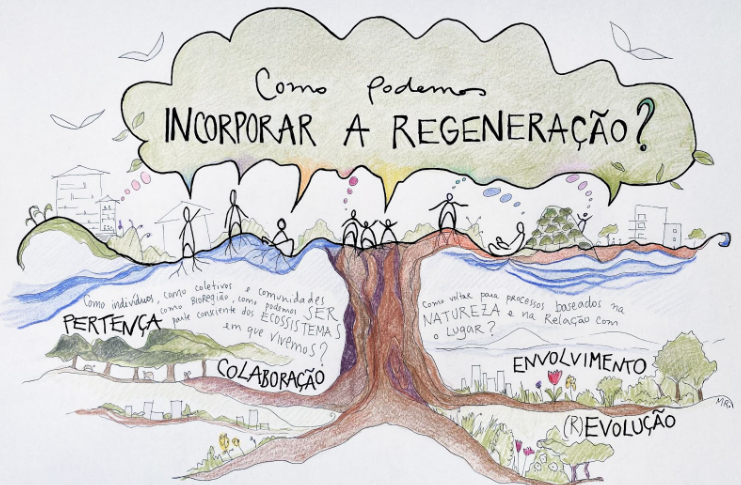 Como podemos
INCORPORAR A REGENERAÇÃO?
Como indivíduos, como coletivos e comunidades
como BioRegião, como podemos SER
parte consciente dos ECOSSISTEMAS
em que vivemos?
Como voltar para processos baseados na
NATUREZA e na Relação com
o Lugar?
PERTENÇA
COLABORAÇÃO
ENVOLVIMENTO
(R)EVOLUÇÃO